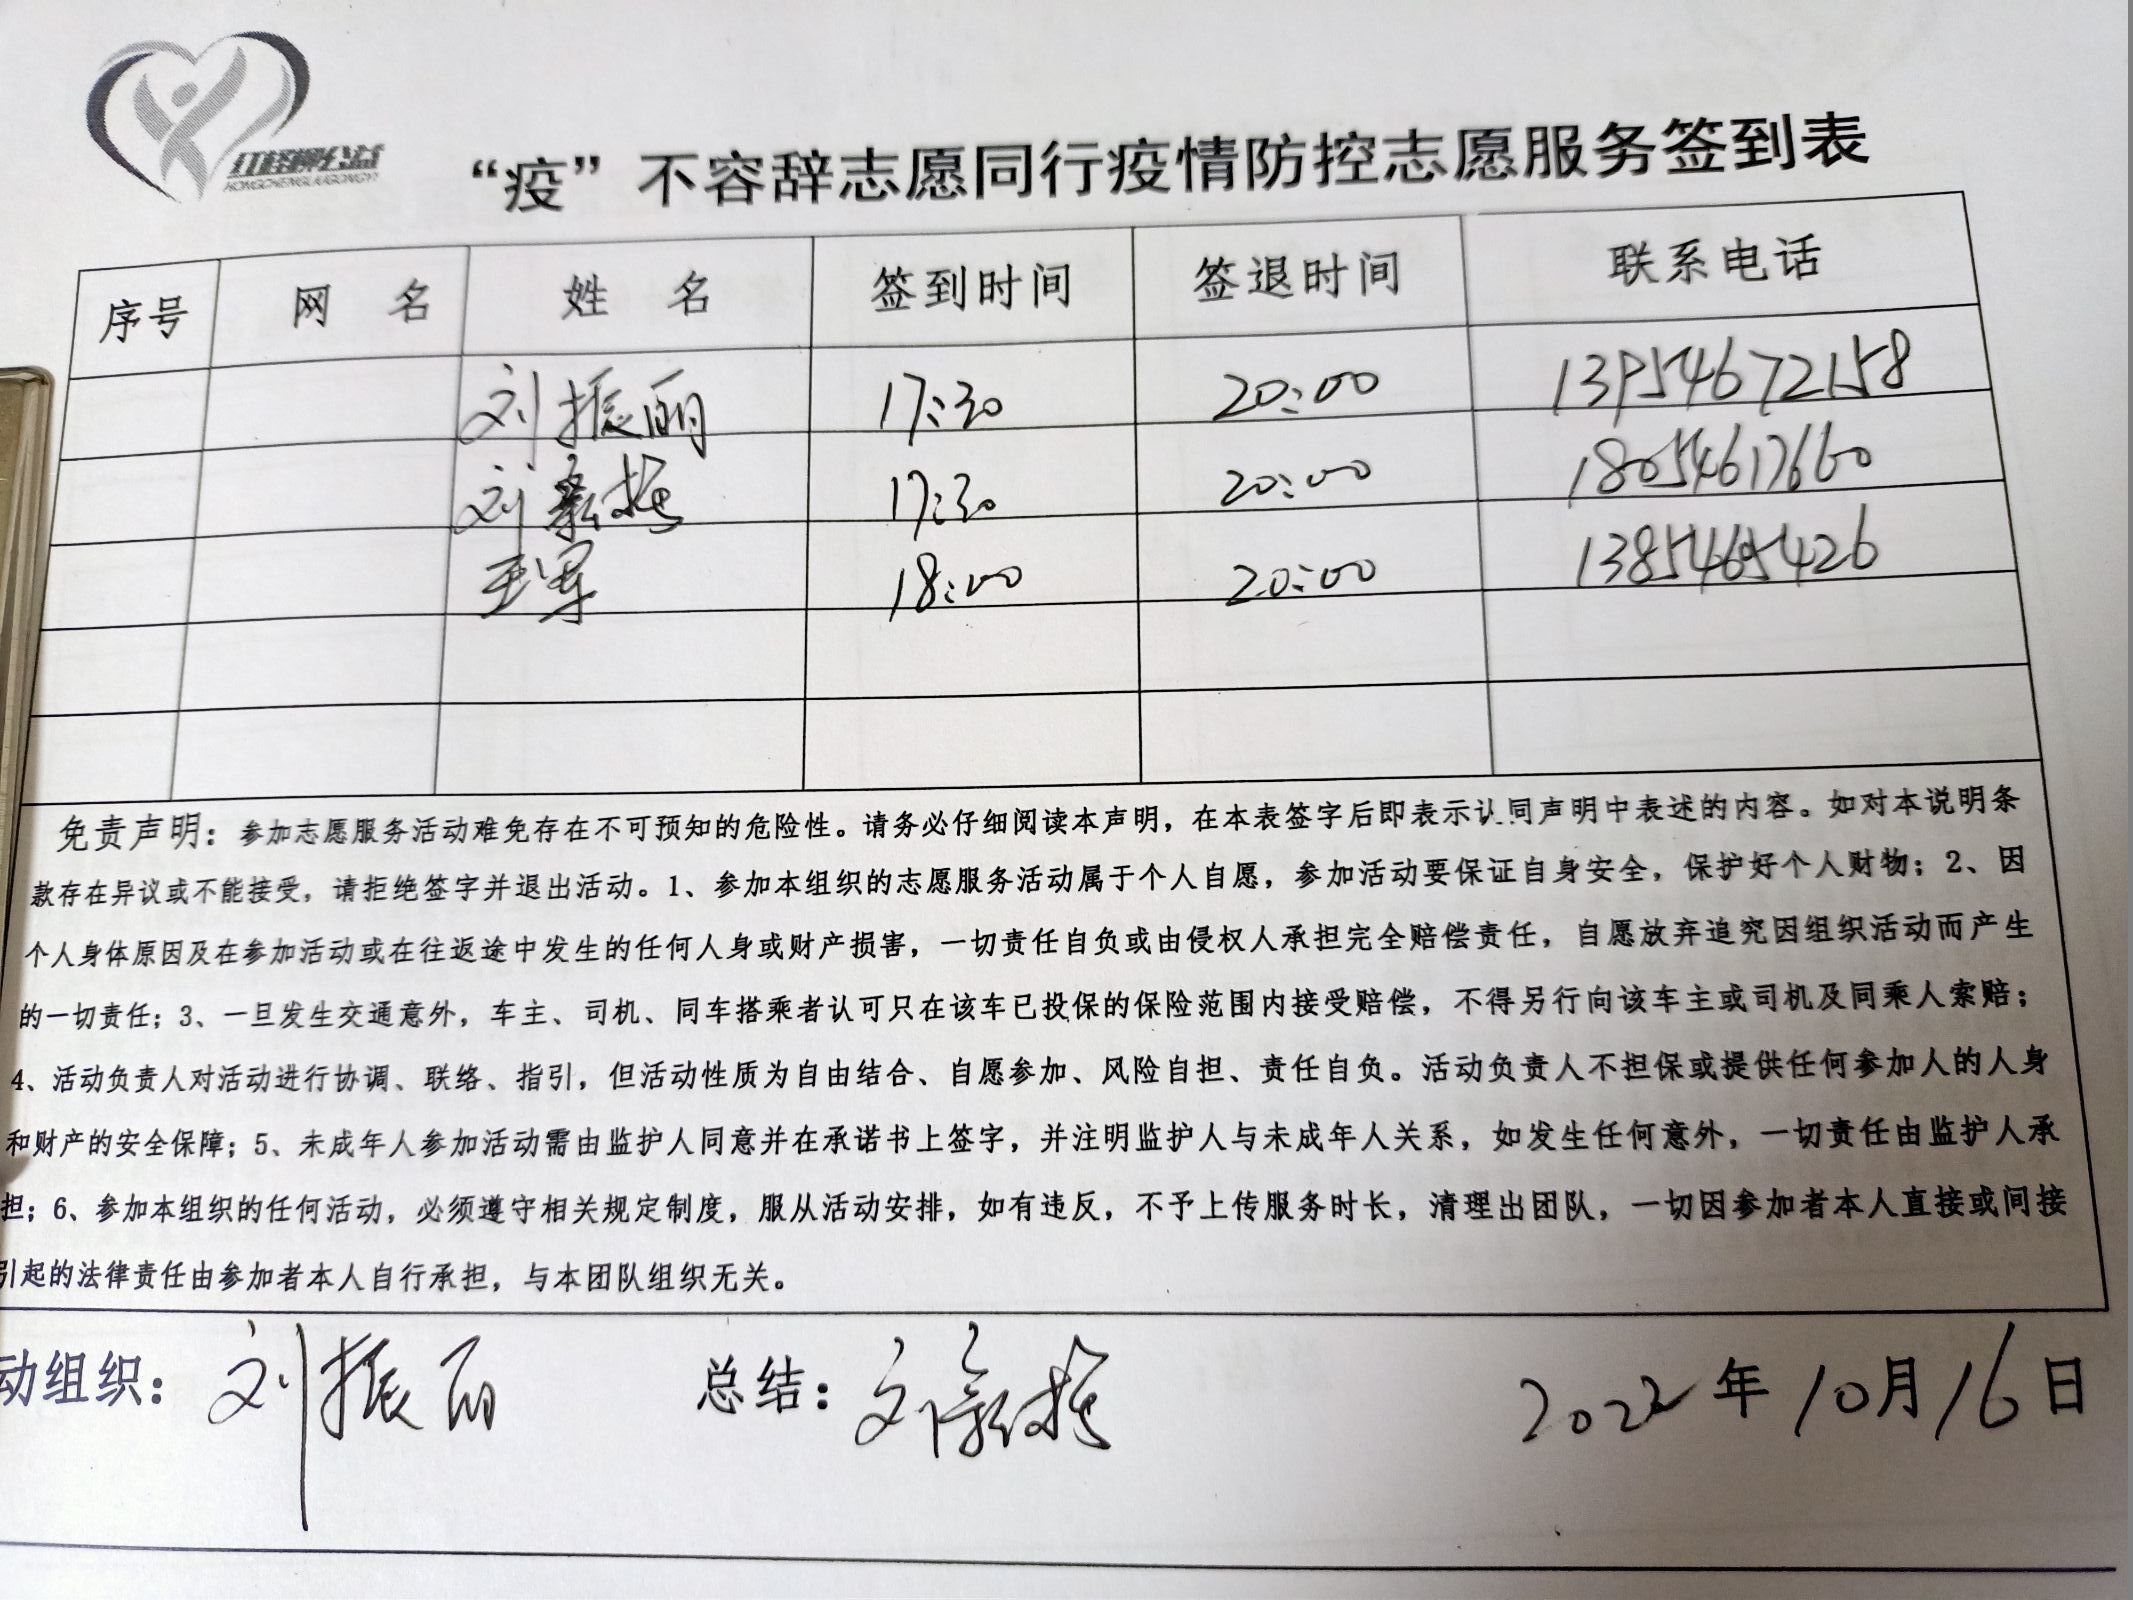 红柽柳公益
HONGCHENGLIUGONGYI
“疫”不容辞志愿同行疫情防控志愿服务签到表
序号 网 名 姓 名 签到时间 签退时间 联系电话
刘振丽 17:30 20:00 13954672158
刘 17:30 20:00 18054617660
王军 18:00 20:00 13854654426
免责声明：参加志愿服务活动难免存在不可预知的危险性。请务必仔细阅读本声明，在本表签字后即表示认同声明中表述的内容。如对本说明条
款存在异议或不能接受，请拒绝签字并退出活动。1、参加本组织的志愿服务活动属于个人自愿，参加活动要保证自身安全，保护好个人财物；2、因
个人身体原因及在参加活动或在往返途中发生的任何人身或财产损害，一切责任自负或由侵权人承担完全赔偿责任，自愿放弃追究因组织活动而产生
的一切责任；3、一旦发生交通意外，车主、司机、同车搭乘者认可只在该车已投保的保险范围内接受赔偿，不得另行向该车主或司机及同乘人索赔；
4、活动负责人对活动进行协调、联络、指引，但活动性质为自由结合、自愿参加、风险自担、责任自负。活动负责人不担保或提供任何参加人的人身
和财产的安全保障；5、未成年人参加活动需由监护人同意并在承诺书上签字，并注明监护人与未成年人关系，如发生任何意外，一切责任由监护人承
担；6、参加本组织的任何活动，必须遵守相关规定制度，服从活动安排，如有违反，不予上传服务时长，清理出团队，一切因参加者本人直接或间接
引起的法律责任由参加者本人自行承担，与本团队组织无关。
动组织：刘振丽 总结：刘 2022年10月16日